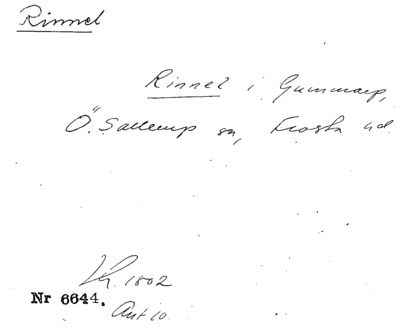 Rinnel
Rinnel i Gummarp,
Ö. Sallerup sn, Frosta hd.
1802
Nr 6644.
Ant 10.